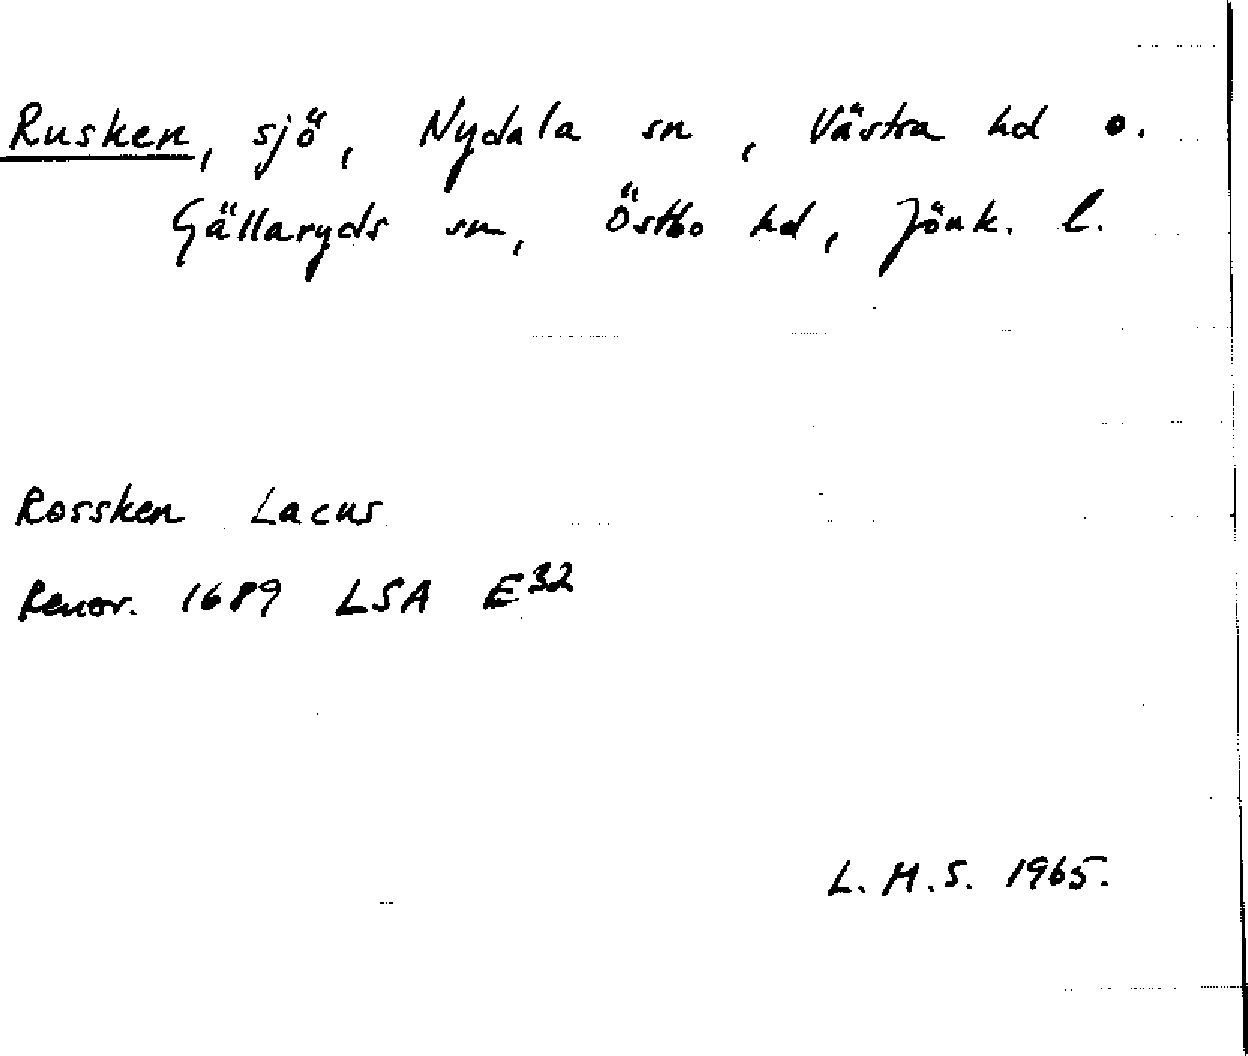 Rusken, sjö, Nydala sn, Västra hd o.
Gällaryds sn, Östbo hd, Jönk. l.
Rossken Lacus
Renov. 1689 LSA E32
L.H.S. 1965.